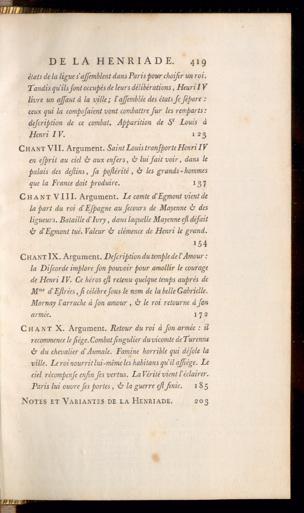 DE LA HENRIADE. 419
états de la ligue s'assemblent dans Paris pour choisir un roi.
Tandis qu'ils sont occupés de leurs délibérations, Henri IV
livre un assaut à la ville ; l'assemblée des états se sépare :
ceux qui la composaient vont combattre sur les remparts :
description de ce combat. Apparition de St Louis à
Henri IV. 123
CHANT VII. Argument. Saint Louis transporte Henri IV
en esprit au ciel & aux enfers, & lui fait voir, dans le
palais des destins, sa postérité, & les grands-hommes
que la France doit produire. 137
CHANT VIII. Argument. Le comte d'Egmont vient de
la part du roi d'Espagne au secours de Mayenne & des
ligueurs. Bataille d'Ivry, dans laquelle Mayenne est défait
& d'Egmont tué. Valeur & clémence de Henri le grand.
154
CHANT IX. Argument. Description du temple de l'Amour :
la Discorde implore son pouvoir pour amollir le courage
de Henri IV. Ce héros est retenu quelque temps auprès de
Mme d'Estrées, si célèbre sous le nom de la belle Gabrielle.
Mornay l'arrache à son amour, & le roi retourne à son
armée. 172
CHANT X. Argument. Retour du roi à son armée : il
recommence le siége. Combat singulier du vicomte de Turenne
& du chevalier d'Aumale. Famine horrible qui désole la
ville. Le roi nourrit lui-même les habitans qu'il assiége. Le
ciel récompense enfin ses vertus. La Vérité vient l'éclairer.
Paris lui ouvre ses portes, & la guerre est finie. 185
NOTES ET VARIANTES DE LA HENRIADE. 203